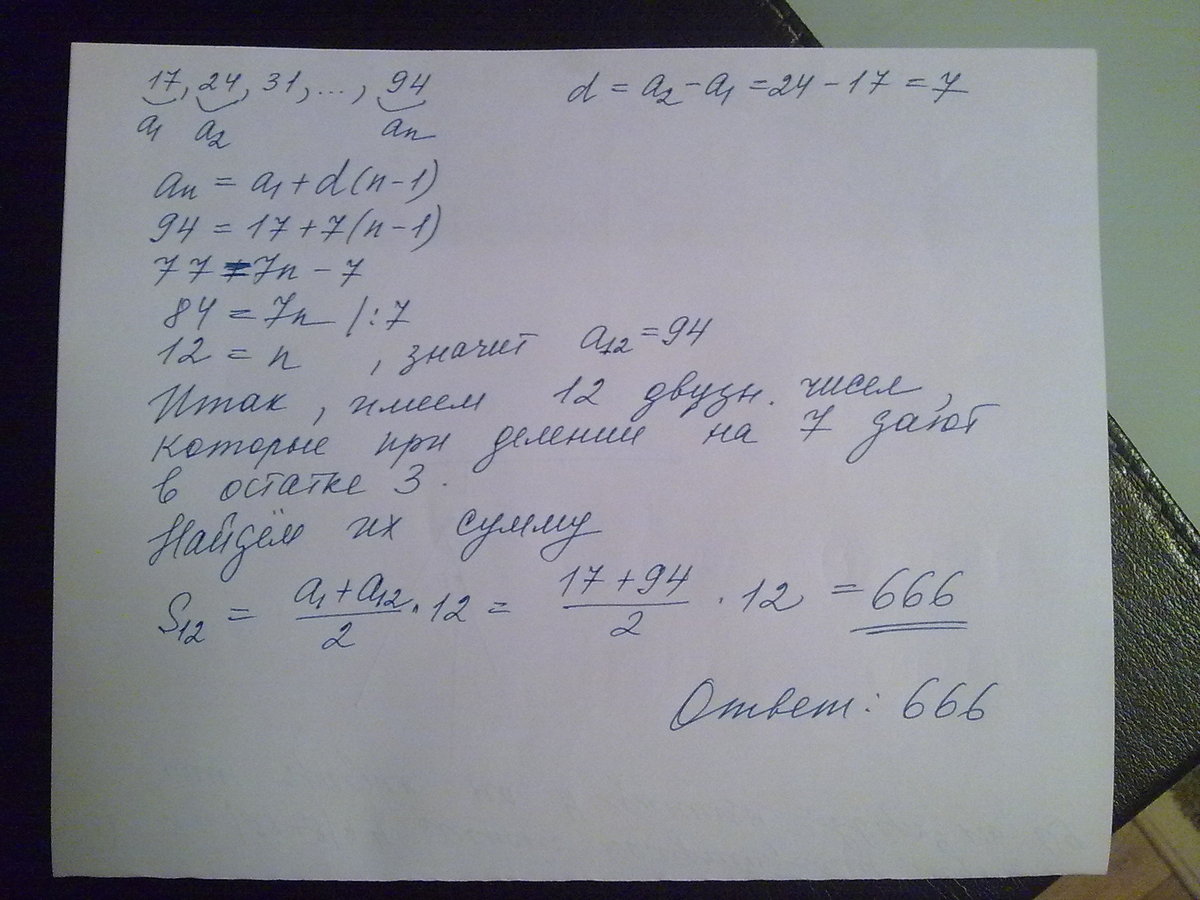 17, 24, 31, ..., 94
a₁ a₂ aₙ
d = a₂ - a₁ = 24 - 17 = 7
aₙ = a₁ + d(n-1)
94 = 17 + 7(n-1)
77 = 7n - 7
84 = 7n /:7
12 = n , значит a₁₂ = 94
Итак, имеем 12 двузн. чисел,
которые при делении на 7 дают
в остатке 3.
Найдём их сумму
S₁₂ = (a₁ + a₁₂)/2 · 12 = (17 + 94)/2 · 12 = 666
Ответ: 666